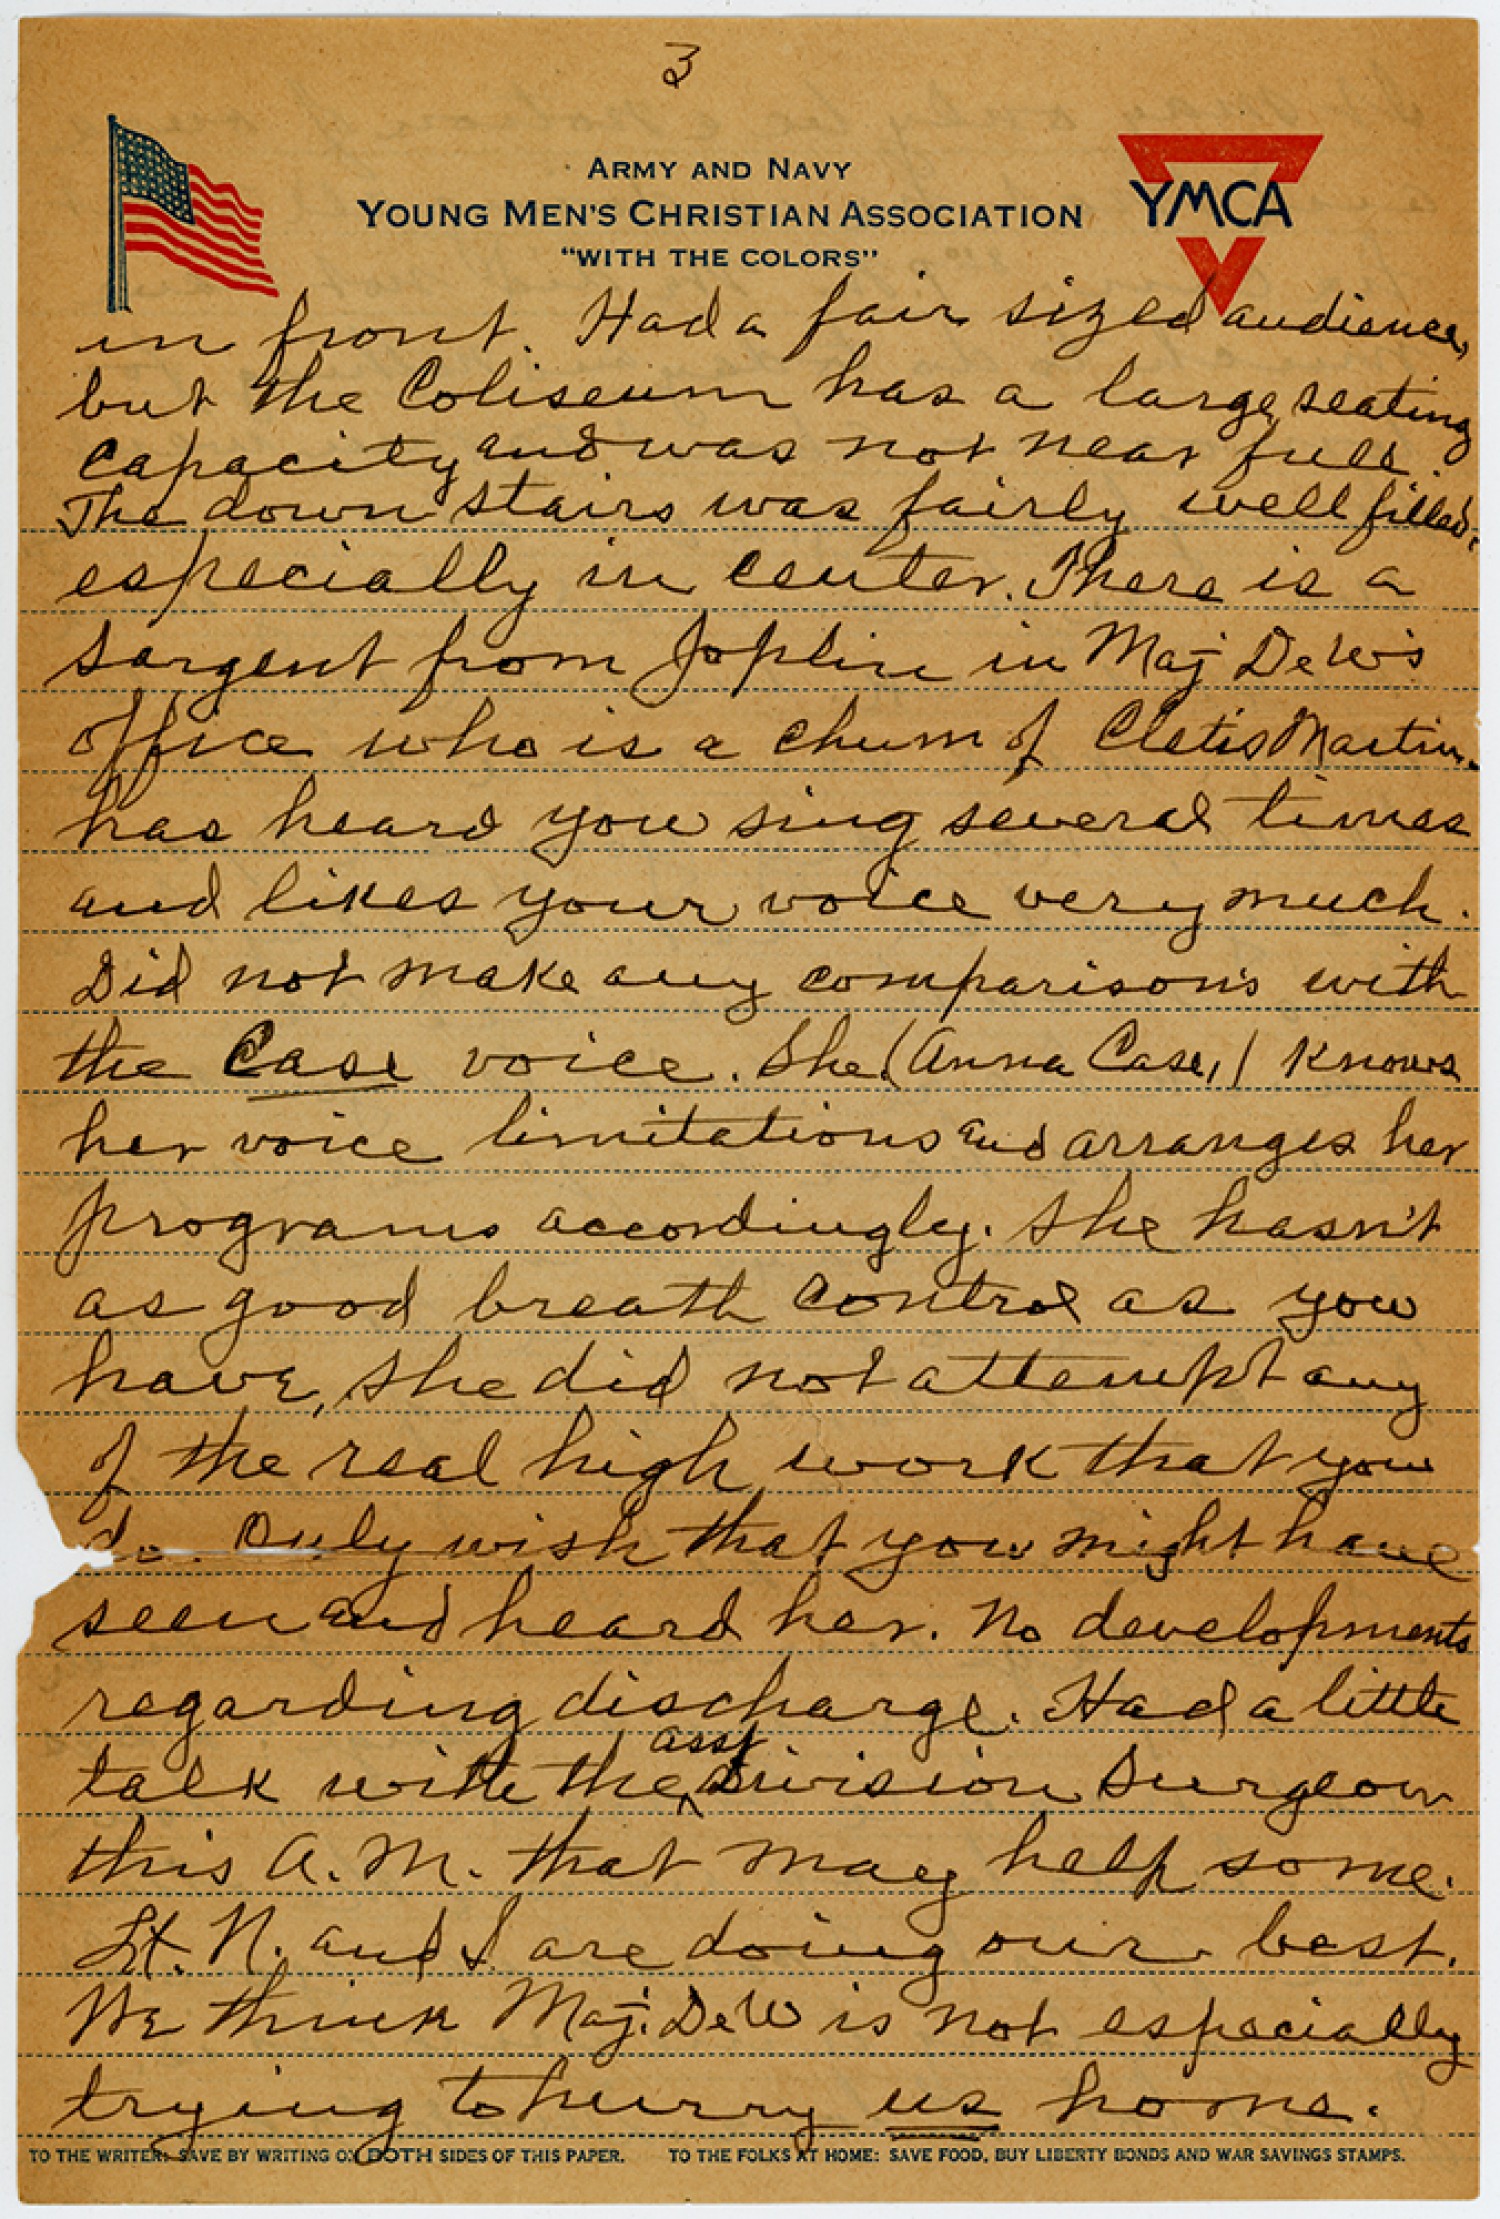 3
ARMY AND NAVY
YOUNG MEN'S CHRISTIAN ASSOCIATION
"WITH THE COLORS"
YMCA
in front. Had a fair sized audience,
but the Coliseum has a large seating
capacity and was not near full.
The down stairs was fairly well filled,
especially in center. There is a
Sargent from Joplin in Maj DeW's
office who is a chum of Cletis Martin.
has heard you sing several times
and likes your voice very much.
Did not make any comparisons with
the Case voice. She (Anna Case,) knows
her voice limitations and arranges her
programs accordingly. She hasn't
as good breath control as you
have, she did not attempt any
of the real high work that you
do. Only wish that you might have
seen and heard her. No developments
regarding discharge. Had a little
talk with the asst Division Surgeon
this A.M. that may help some.
Lt. N. and I are doing our best.
We think Maj. DeW is not especially
trying to hurry us home.
TO THE WRITER: SAVE BY WRITING ON BOTH SIDES OF THIS PAPER. TO THE FOLKS AT HOME: SAVE FOOD, BUY LIBERTY BONDS AND WAR SAVINGS STAMPS.